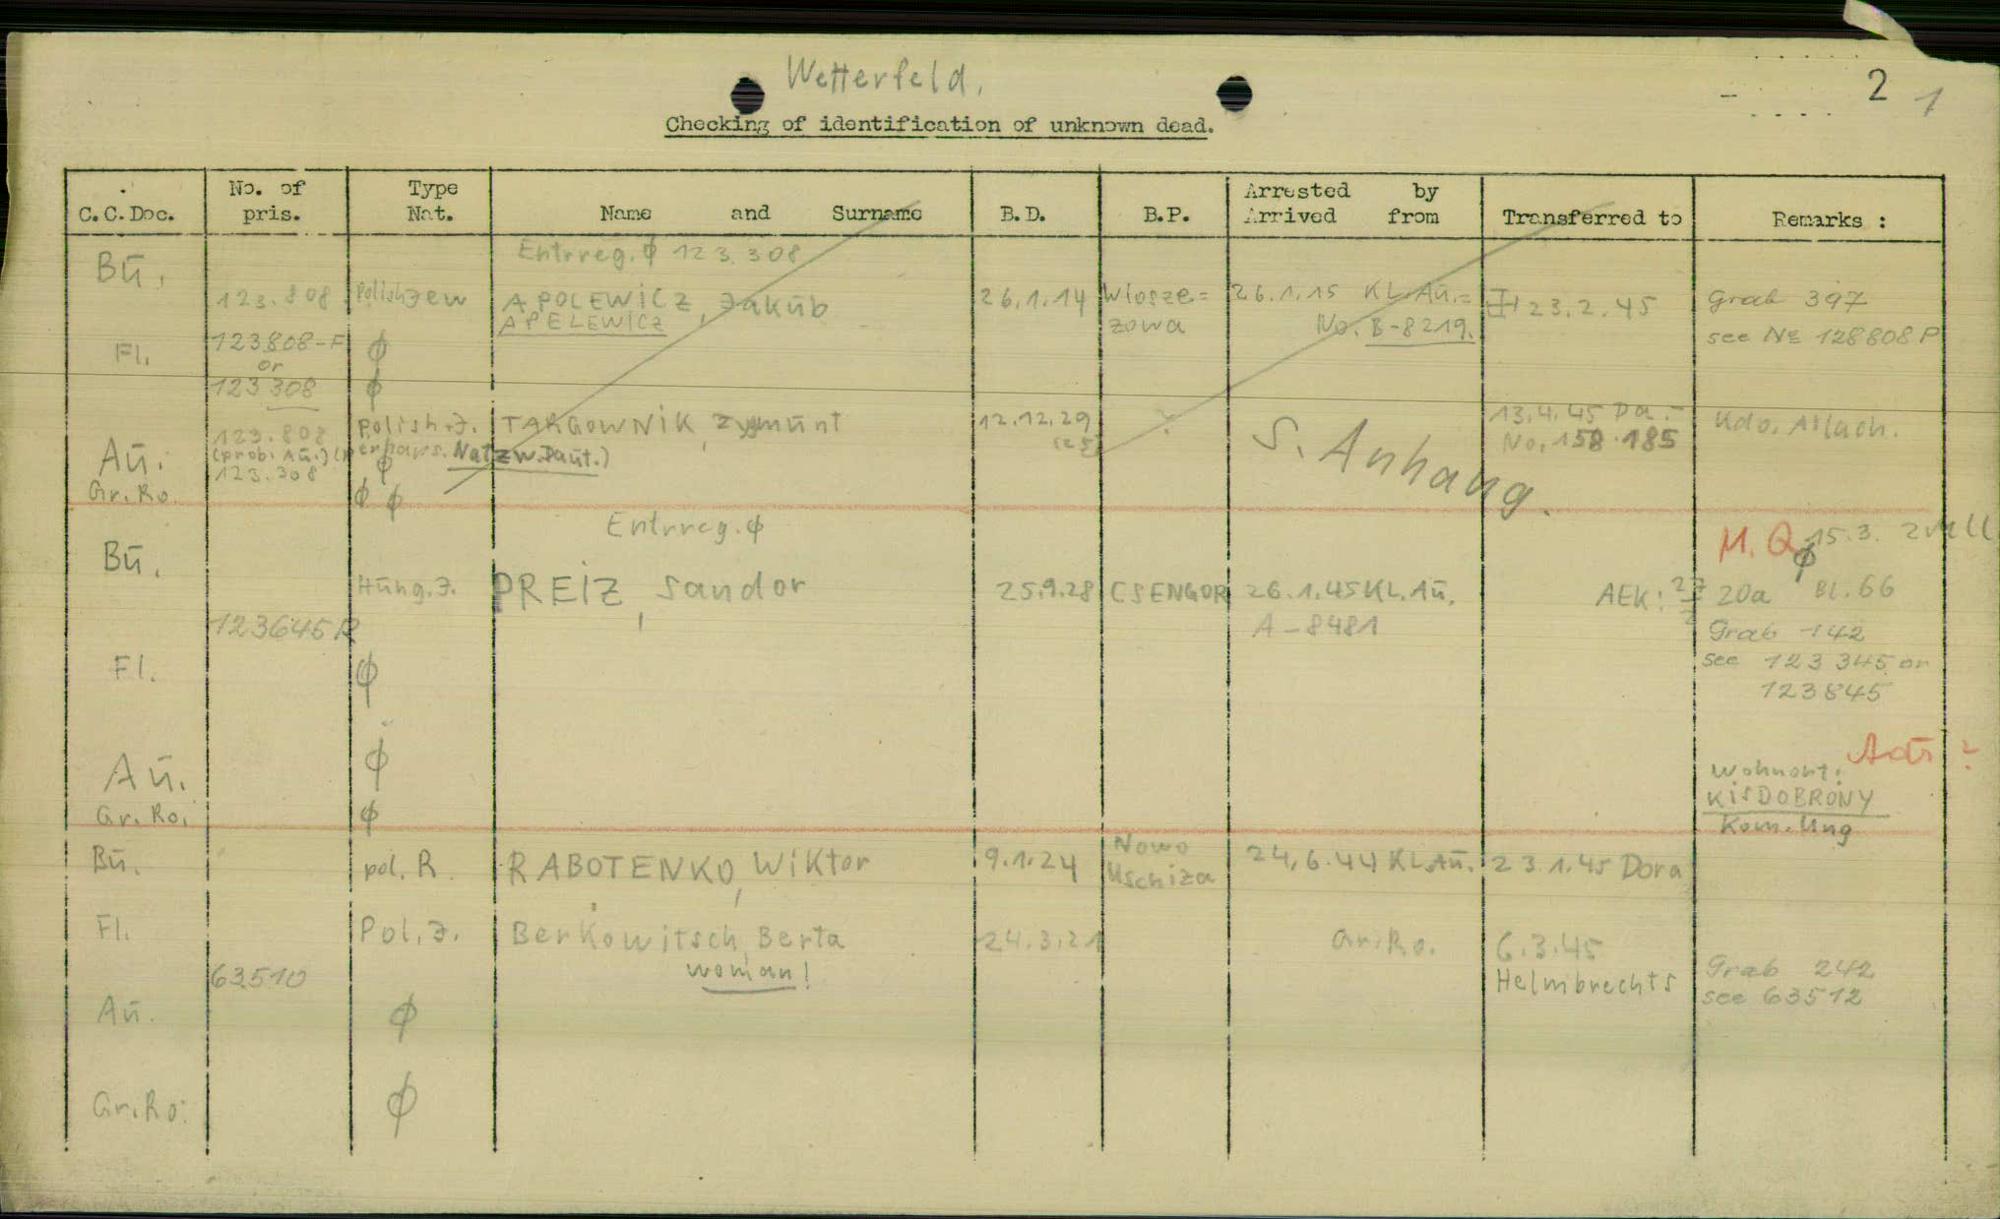 Wetterfeld.
2 1
Checking of identification of unknown dead.
C.C.Doc. No. of pris. Type Nat. Name and Surname B.D. B.P. Arrested by Arrived from Transferred to Remarks :
Entrreg. ϕ 123.308
Bū. 123.808 Polish Jew APOLEWICZ, Jakūb 26.1.14 Wlosze= 26.1.15 KL.Aū.= 23.2.45 Grab 397
APELEWICZ zowa No. B-8219. see No 128808 P
Fl. 123808-F ϕ
or
123308 ϕ
Aū. 123.808 Polish.J. TARGOWNIK, Zygmūnt 12.12.29 ? 13.4.45 Da.- Kdo. Allach.
(25) No. 158.185
(prob. Aū.) (perhaps. Natzw.Daūt.)
123.308 ϕ
S. Anhang.
Gr.Ro. ϕ ϕ
Entrreg. ϕ
M.Q. ϕ 15.3.
Bū. Hūng.J. PREIZ, Sandor 25.9.28 CSENGOR 26.1.45 KL.Aū. AEK: 27 20a Bl.66
123645 R A-8481 Grab 142
Fl. ϕ see 123345 or
123845
Aū. ϕ
Wohnort:
KISDOBRONY
Gr.Ro. ϕ Kom. Ung
Bū. pol. R. RABOTENKO, Wiktor 9.1.24 Nowo Uschiza 24.6.44 KL.Aū. 23.1.45 Dora
Fl. Pol.J. Berkowitsch, Berta 24.3.21 Gr.Ro. 6.3.45
63510 woman! Helmbrechts Grab 242
see 63512
Aū. ϕ
Gr.Ro. ϕ